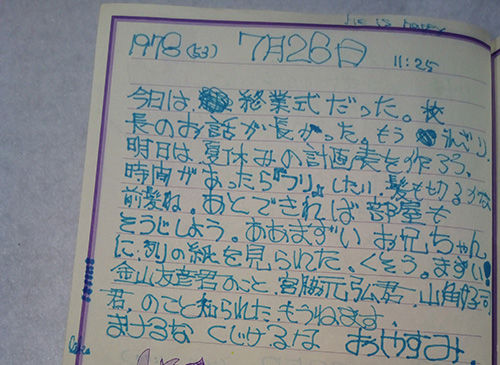 He is happy
1978(53) 7月26日 11:25
今日は 終業式だった。校
長のお話が長かった。もう
明日は、夏休みの計画表を作ろう。
時間があったら『フリ』したい。髪も切るかな
前髪ね。あとできれば部屋も
そうじしよう。ああまずいお兄ちゃん
に、の紙を見られた。くそう。まずい!
金山友彦君のこと、宮脇元弘君、山角好司
君、のこと知られた。もうねます。
まけるな くじけるな おやすみ。